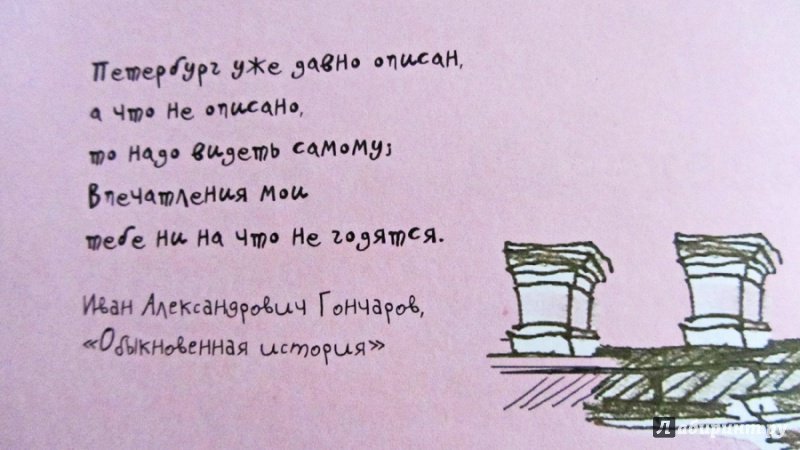 Петербург уже давно описан,
а что не описано,
то надо видеть самому;
Впечатления мои
тебе ни на что не годятся.
Иван Александрович Гончаров,
«Обыкновенная история»
Лабиринт.ру